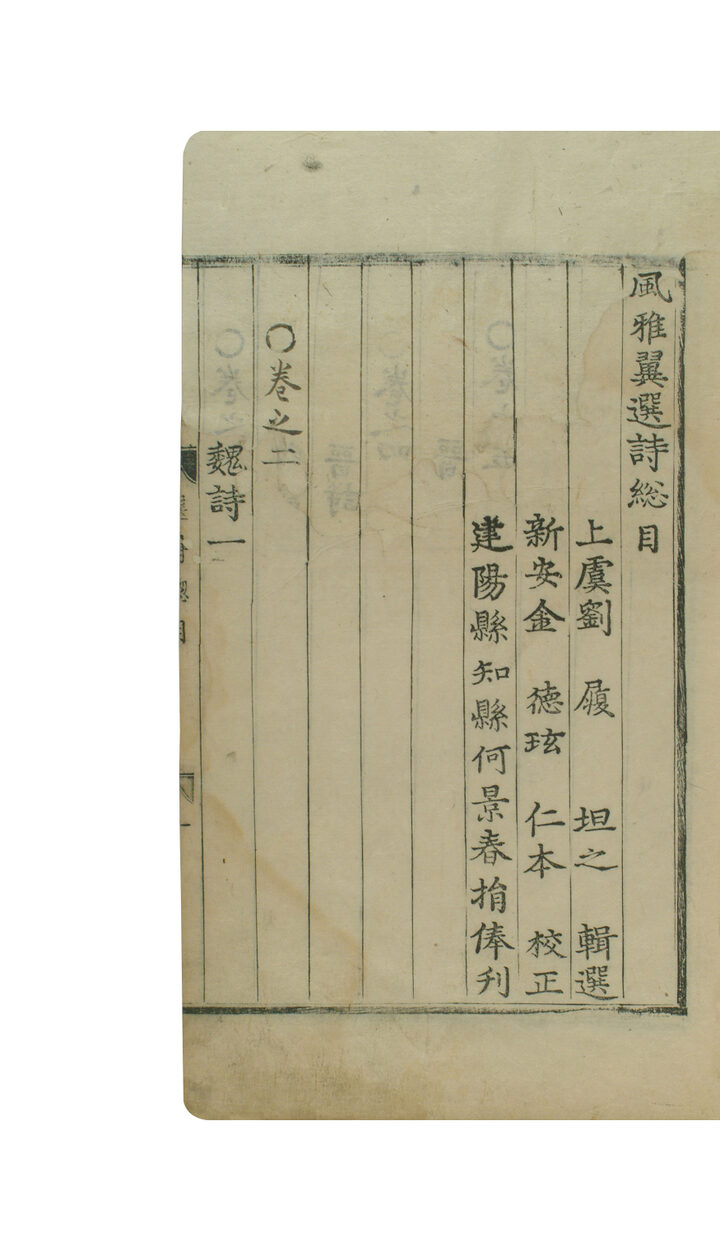 風雅翼選詩総目
上虞劉 履 坦之 輯選
新安金 德玹 仁本 校正
建陽縣知縣何景春捐俸刋
〇卷之二
魏詩一